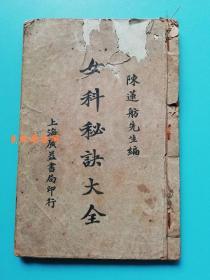 陳蓮舫先生編
女科秘訣大全
上海廣益書局印行